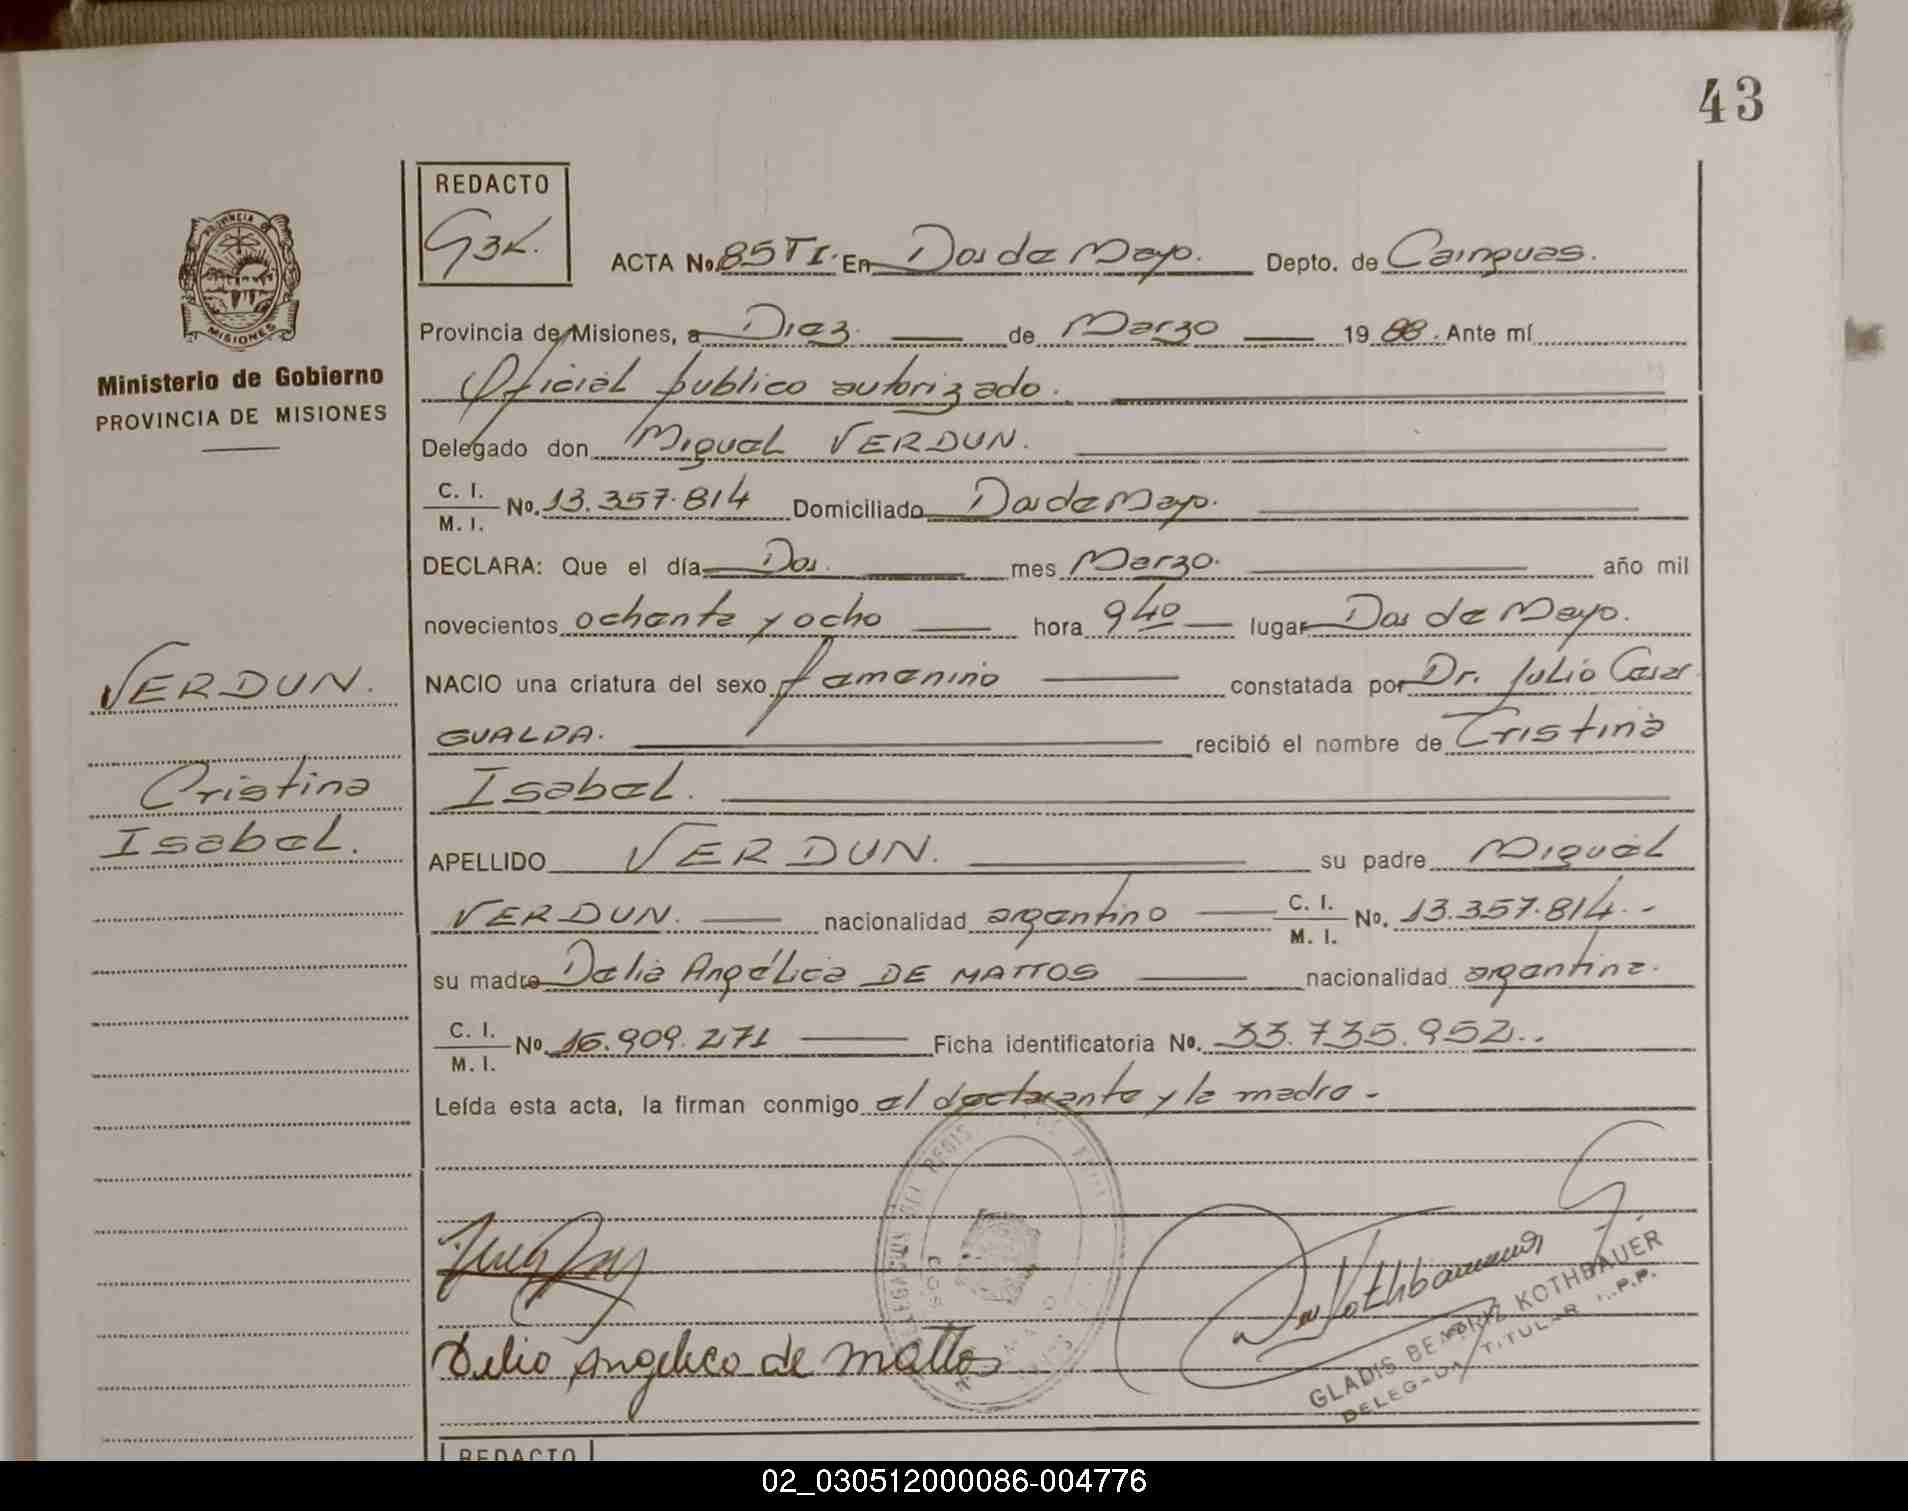 43
REDACTO
G3K.
PROVINCIA DE
MISIONES
Ministerio de Gobierno
PROVINCIA DE MISIONES
ACTA No. 85 T I. En Dos de Mayo. Depto. de Cainguas.
Provincia de Misiones, a Diez de Marzo 19 88. Ante mí
Oficial público autorizado.
Delegado don Miguel VERDUN.
C. I. / M. I. No. 13.357.814 Domiciliado Dos de Mayo.
DECLARA: Que el día Dos. mes Marzo. año mil
novecientos ochenta y ocho hora 9 40 lugar Dos de Mayo.
NACIO una criatura del sexo femenino constatada por Dr. Julio Cesar
GUALDA. recibió el nombre de Cristina
Isabel.
APELLIDO VERDUN. su padre Miguel
VERDUN. nacionalidad argentino C. I. / M. I. No. 13.357.814.-
su madre Delia Angélica DE MATTOS nacionalidad argentina.
C. I. / M. I. No. 16.909.271 Ficha identificatoria No. 33.735.952..
Leída esta acta, la firman conmigo el declarante y la madre -
VERDUN.
Cristina
Isabel.
Delia Angelica de Mattos
Kothbauer
GLADIS BEATRIZ KOTHBAUER
DELEGADA TITULAR
REDACTO
02_030512000086-004776